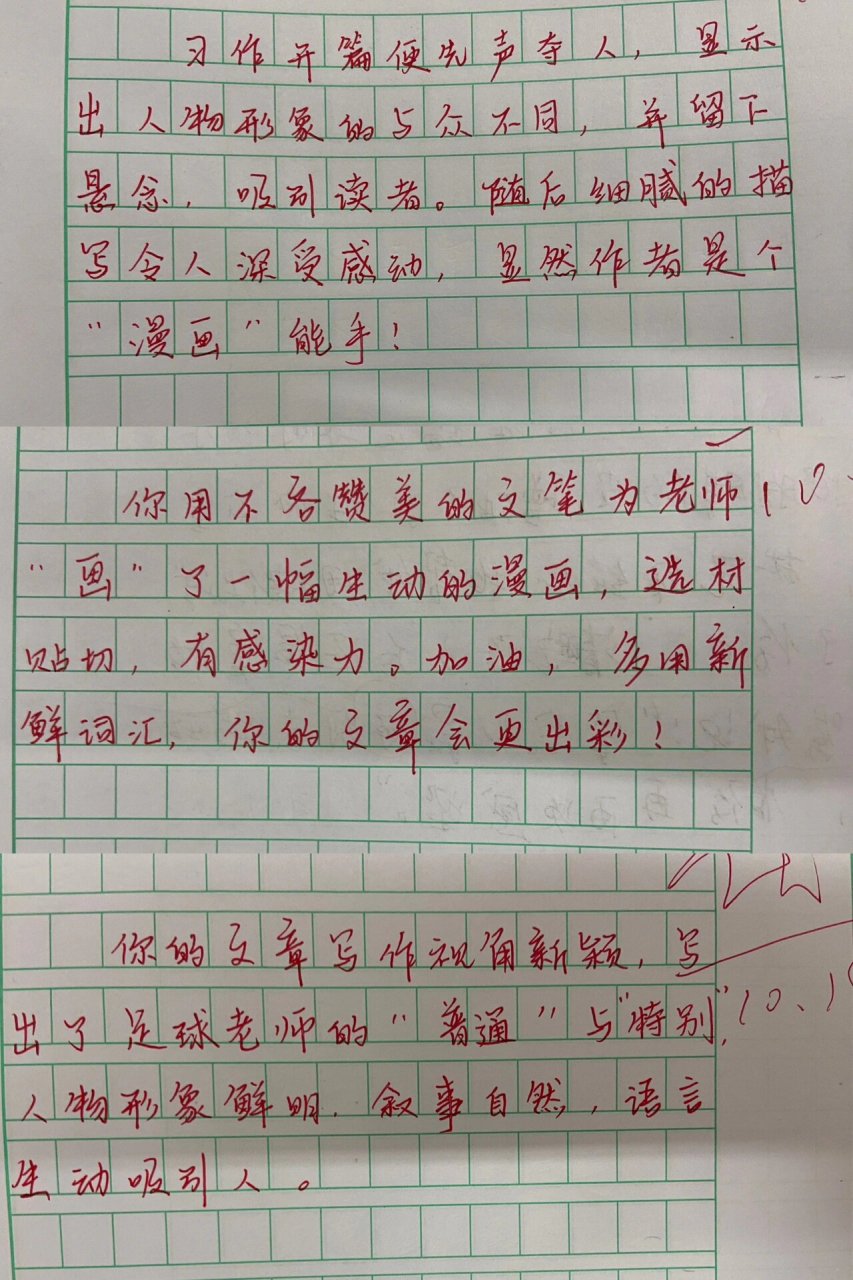 习作开篇便先声夺人，显示
出人物形象的与众不同，并留下
悬念，吸引读者。随后细腻的描
写令人深受感动，显然作者是个
“漫画”能手！
你用不吝赞美的文笔为老师
“画”了一幅生动的漫画，选材
贴切，有感染力。加油，多用新
鲜词汇，你的文章会更出彩！
你的文章写作视角新颖，写
出了足球老师的“普通”与“特别”，
人物形象鲜明，叙事自然，语言
生动吸引人。